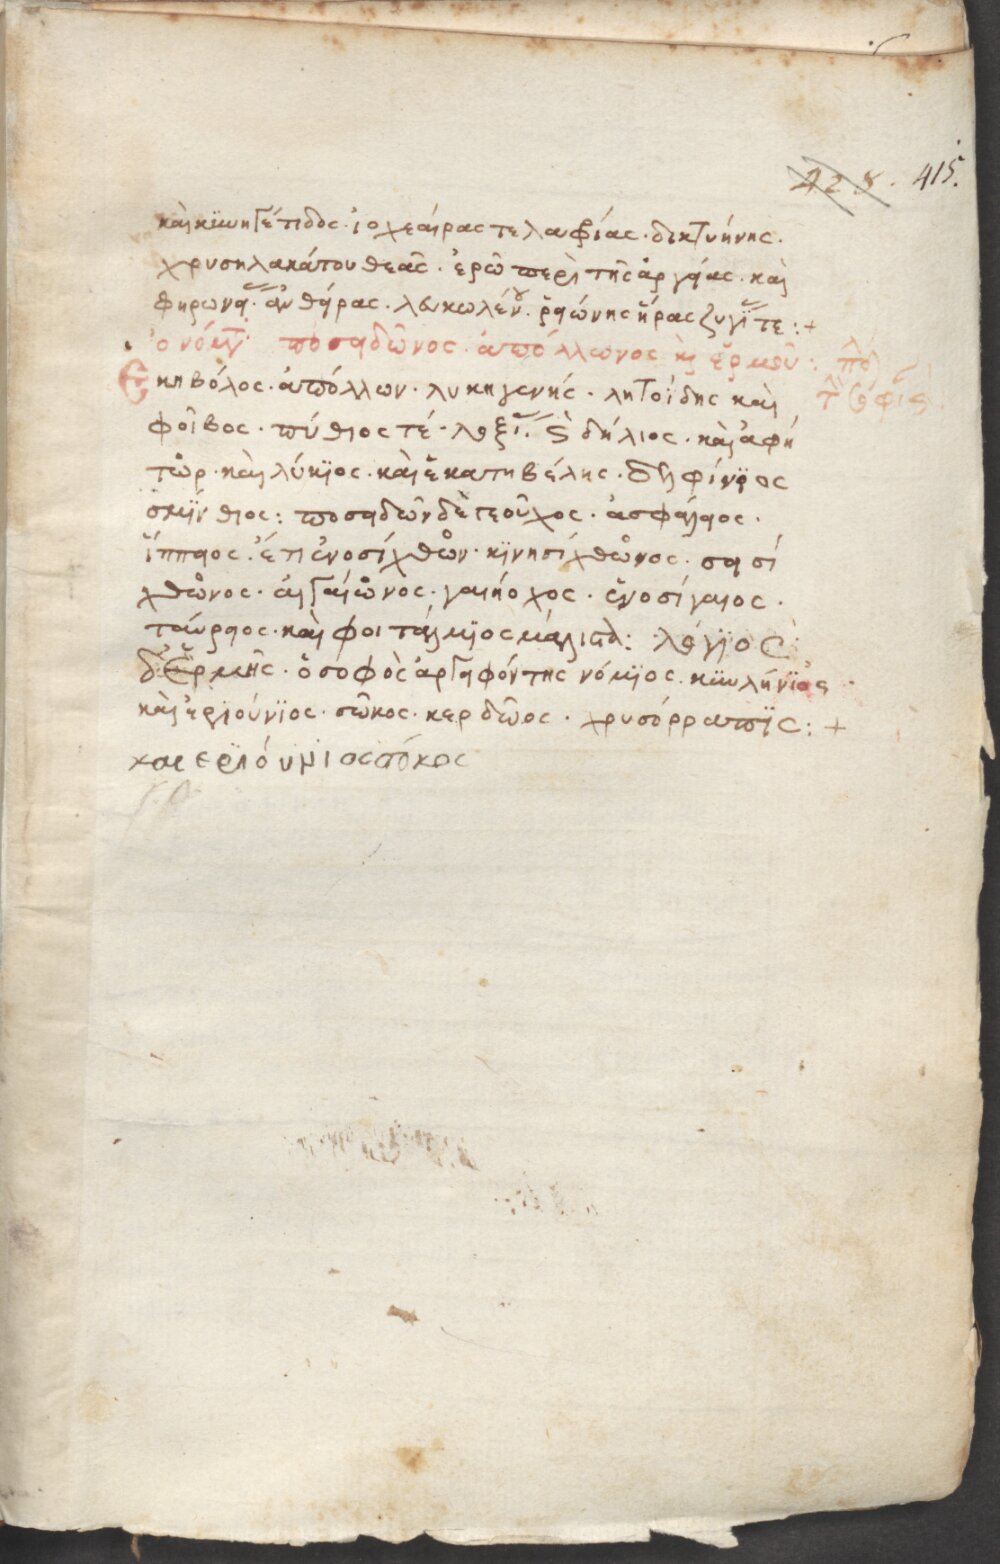 428. 415.
καὶ κϊωηγέτιδος· ἰοχεαίρας τε λαφίας· δικτυήνης·
χρυσηλακάτου θεᾶς· ἐρῶ περὶ τῆς ἀργείας· καὶ
ἀνθείρας· λευκωλένου· βοώνης ἥρας ζυγίας τε:+
ὀνόματα ποσειδῶνος· ἀπόλλωνος καὶ ἑρμοῦ:
Ἑκηβόλος· ἀπόλλων· λυκηγενής· λητοΐδης καὶ
φοῖβος· πύθιός τέ· λοξίας· δήλιος· καὶ ἀφή
τωρ· καὶ λύκϊος· καὶ ἑκατηβέλης· δελφίνϊος
σμίνθιος: ποσειδῶν δὲ γεοῦχος· ἀσφάλειος·
ἵππειος· ἔτι ἐνοσίχθων· κϊνησίχθωνος· σεισί
χθωνος· αἰγαίωνος· γαιήοχος· ἐνοσίγαιος·
ταύρειος· καὶ φοιτάλμϊος μάλιστα: λόγϊος
δ' Ἑρμῆς· ὁ σοφὸς ἀργειφόντης νόμϊος· κϊωλήνϊος
καὶ ἐριούνϊος· σῶκος· κερδῶος· χρυσόρραπϊς:+
και εριόυμιος σῶκος